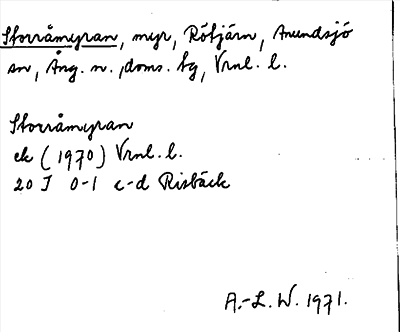 Storråmyran, myr, Rötjärn, Anundsjö
sn, Ång. n., doms. tg, Vrnl. l.
Storråmyran
ek (1970) Vrnl. l.
20 J 0-1 c-d Risbäck
A.-L. W. 1971.